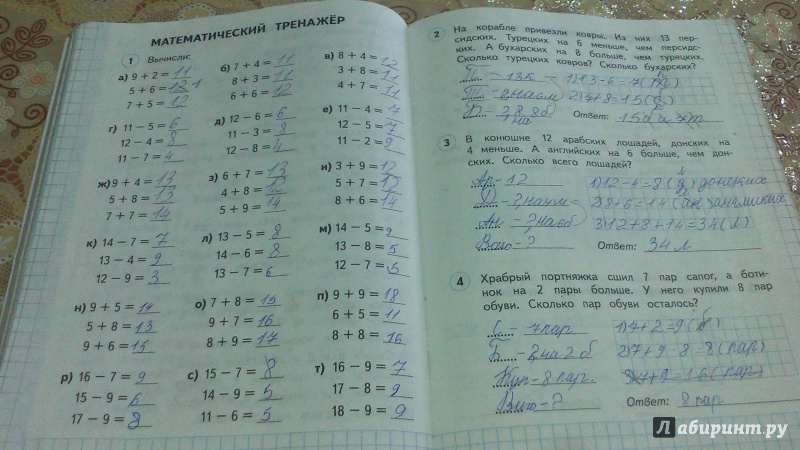 МАТЕМАТИЧЕСКИЙ ТРЕНАЖЁР
1 Вычисли:
а) 9 + 2 = 11
5 + 6 =
7 + 5 = 12
б) 7 + 4 = 11
8 + 3 = 11
6 + 6 = 12
в) 8 + 4 = 12
3 + 8 = 11
4 + 7 = 11
г) 11 − 5 = 6
12 − 4 = 8
11 − 7 = 4
д) 12 − 6 = 6
11 − 3 = 8
12 − 8 = 4
е) 11 − 4 = 7
12 − 5 = 7
11 − 2 = 9
ж) 9 + 4 = 13
5 + 8 = 13
7 + 7 = 14
з) 6 + 7 = 13
4 + 8 = 12
5 + 9 = 14
и) 3 + 9 = 12
5 + 7 = 12
8 + 6 = 14
к) 14 − 7 = 7
13 − 4 = 9
12 − 9 = 3
л) 13 − 5 = 8
14 − 6 = 8
13 − 7 = 6
м) 14 − 5 = 9
13 − 8 = 5
12 − 7 = 5
н) 9 + 5 = 14
5 + 8 = 13
9 + 6 = 15
о) 7 + 8 = 15
9 + 7 = 16
8 + 9 = 17
п) 9 + 9 = 18
6 + 5 = 11
8 + 8 = 16
р) 16 − 7 = 9
15 − 9 = 6
17 − 9 = 8
с) 15 − 7 = 8
14 − 9 = 5
11 − 6 = 5
т) 16 − 9 = 7
17 − 8 = 9
18 − 9 = 9
2 На корабле привезли ковры. Из них 13 пер-
сидских. Турецких на 6 меньше, чем персидс-
ких. А бухарских на 8 больше, чем турецких.
Сколько турецких ковров? Сколько бухарских?
П - 13к 1) 13-6=7
Т 2) 7+8=15
Б
Ответ: 15б
3 В конюшне 12 арабских лошадей, донских на
4 меньше. А английских на 6 больше, чем дон-
ских. Сколько всего лошадей?
Ар - 12 1) 12-4=8 (л) донских
Д - ? на 4 м 2) 8+6=14 английских
Ан - ? на 6 б 3) 12+8+14=34 (л)
Всего - ? Ответ: 34 л.
4 Храбрый портняжка сшил 7 пар сапог, а боти-
нок на 2 пары больше. У него купили 8 пар
обуви. Сколько пар обуви осталось?
С - 7 пар 1) 7+2=9 (б)
Б - ? на 2 б 2) 7+9-8=8 (пар)
Куп - 8 пар. 7+9=16 (пар)
Ответ: 8 пар
Лабиринт.ру